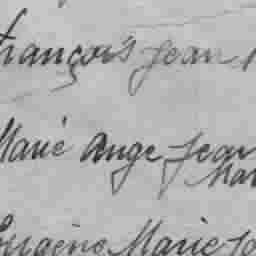 François Jean
Marie Ange Jean
Mar
Eugène Marie Jo